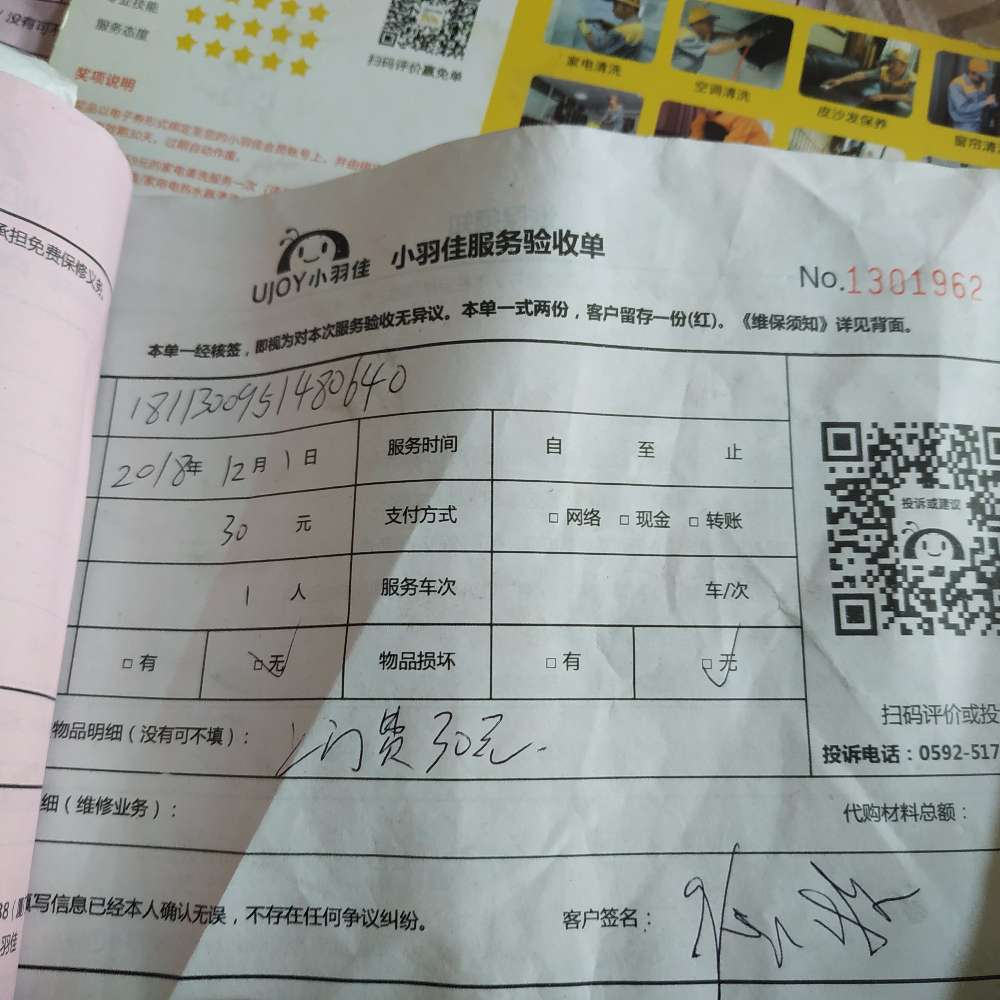 没有可不
专业技能
服务态度
扫码评价赢免单
奖项说明
家电清洗
空调清洗
皮沙发保养
窗帘清洗
承担免费保修义务
UJOY小羽佳
小羽佳服务验收单
No.1301962
本单一经核签，即视为对本次服务验收无异议。本单一式两份，客户留存一份(红)。《维保须知》详见背面。
1811300951480640
2018年 12月 1日 服务时间 自 至 止
30 元 支付方式 □ 网络 □ 现金 □ 转账
1 人 服务车次 车/次
□ 有 □ 无 物品损坏 □ 有 □ 无
投诉或建议
扫码评价或投
投诉电话：0592-517
物品明细（没有可不填）： 上门费30元.
细（维修业务）： 代购材料总额：
填写信息已经本人确认无误，不存在任何争议纠纷。 客户签名：